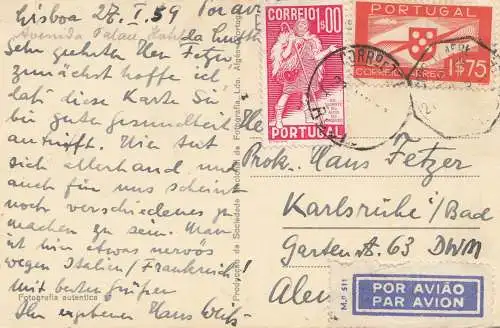 Lisboa 27. I. 39 Por avi
Avenida Palace Hotel
Sehr geehrter Herr Fetzer
zunächst hoffe ich
daß diese Karte Sie
bei guter Gesundheit
antrifft. Hier tut
sich allerhand und
auch für uns scheint
noch verschiedenes zu
machen zu sein. Man
ist hier etwas nervös
wegen Italien/Frankreich
mit besten Grüßen
Ihr ergebener Hans
Fotografia autentica
Produção da Sociedade Nacional de Fotografia, Lda. Algés-Portugal
CORREIO 1$00
PORTUGAL
PORTUGAL
CORREIO AEREO 1$75
CORREIO
AEREO
Prok. Hans Fetzer
Karlsruhe/Bad
Gartenstr. 63 DWM
Alem
Mod. 511
POR AVIÃO
PAR AVION